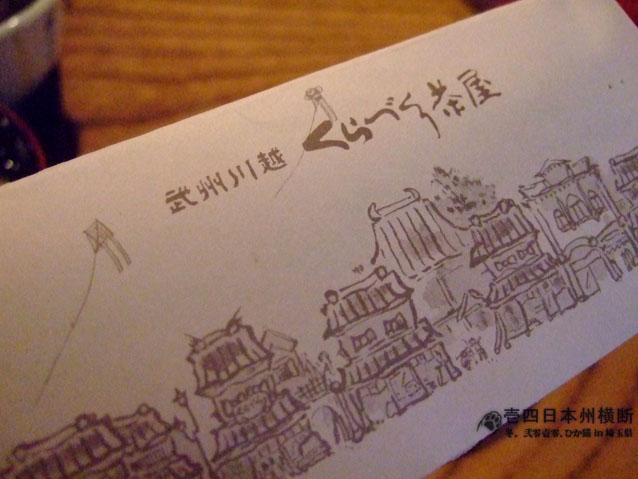 武州川越 くらづくり茶屋
壱四日本州横断
冬，弐零壱零，ひか猫 in 埼玉県